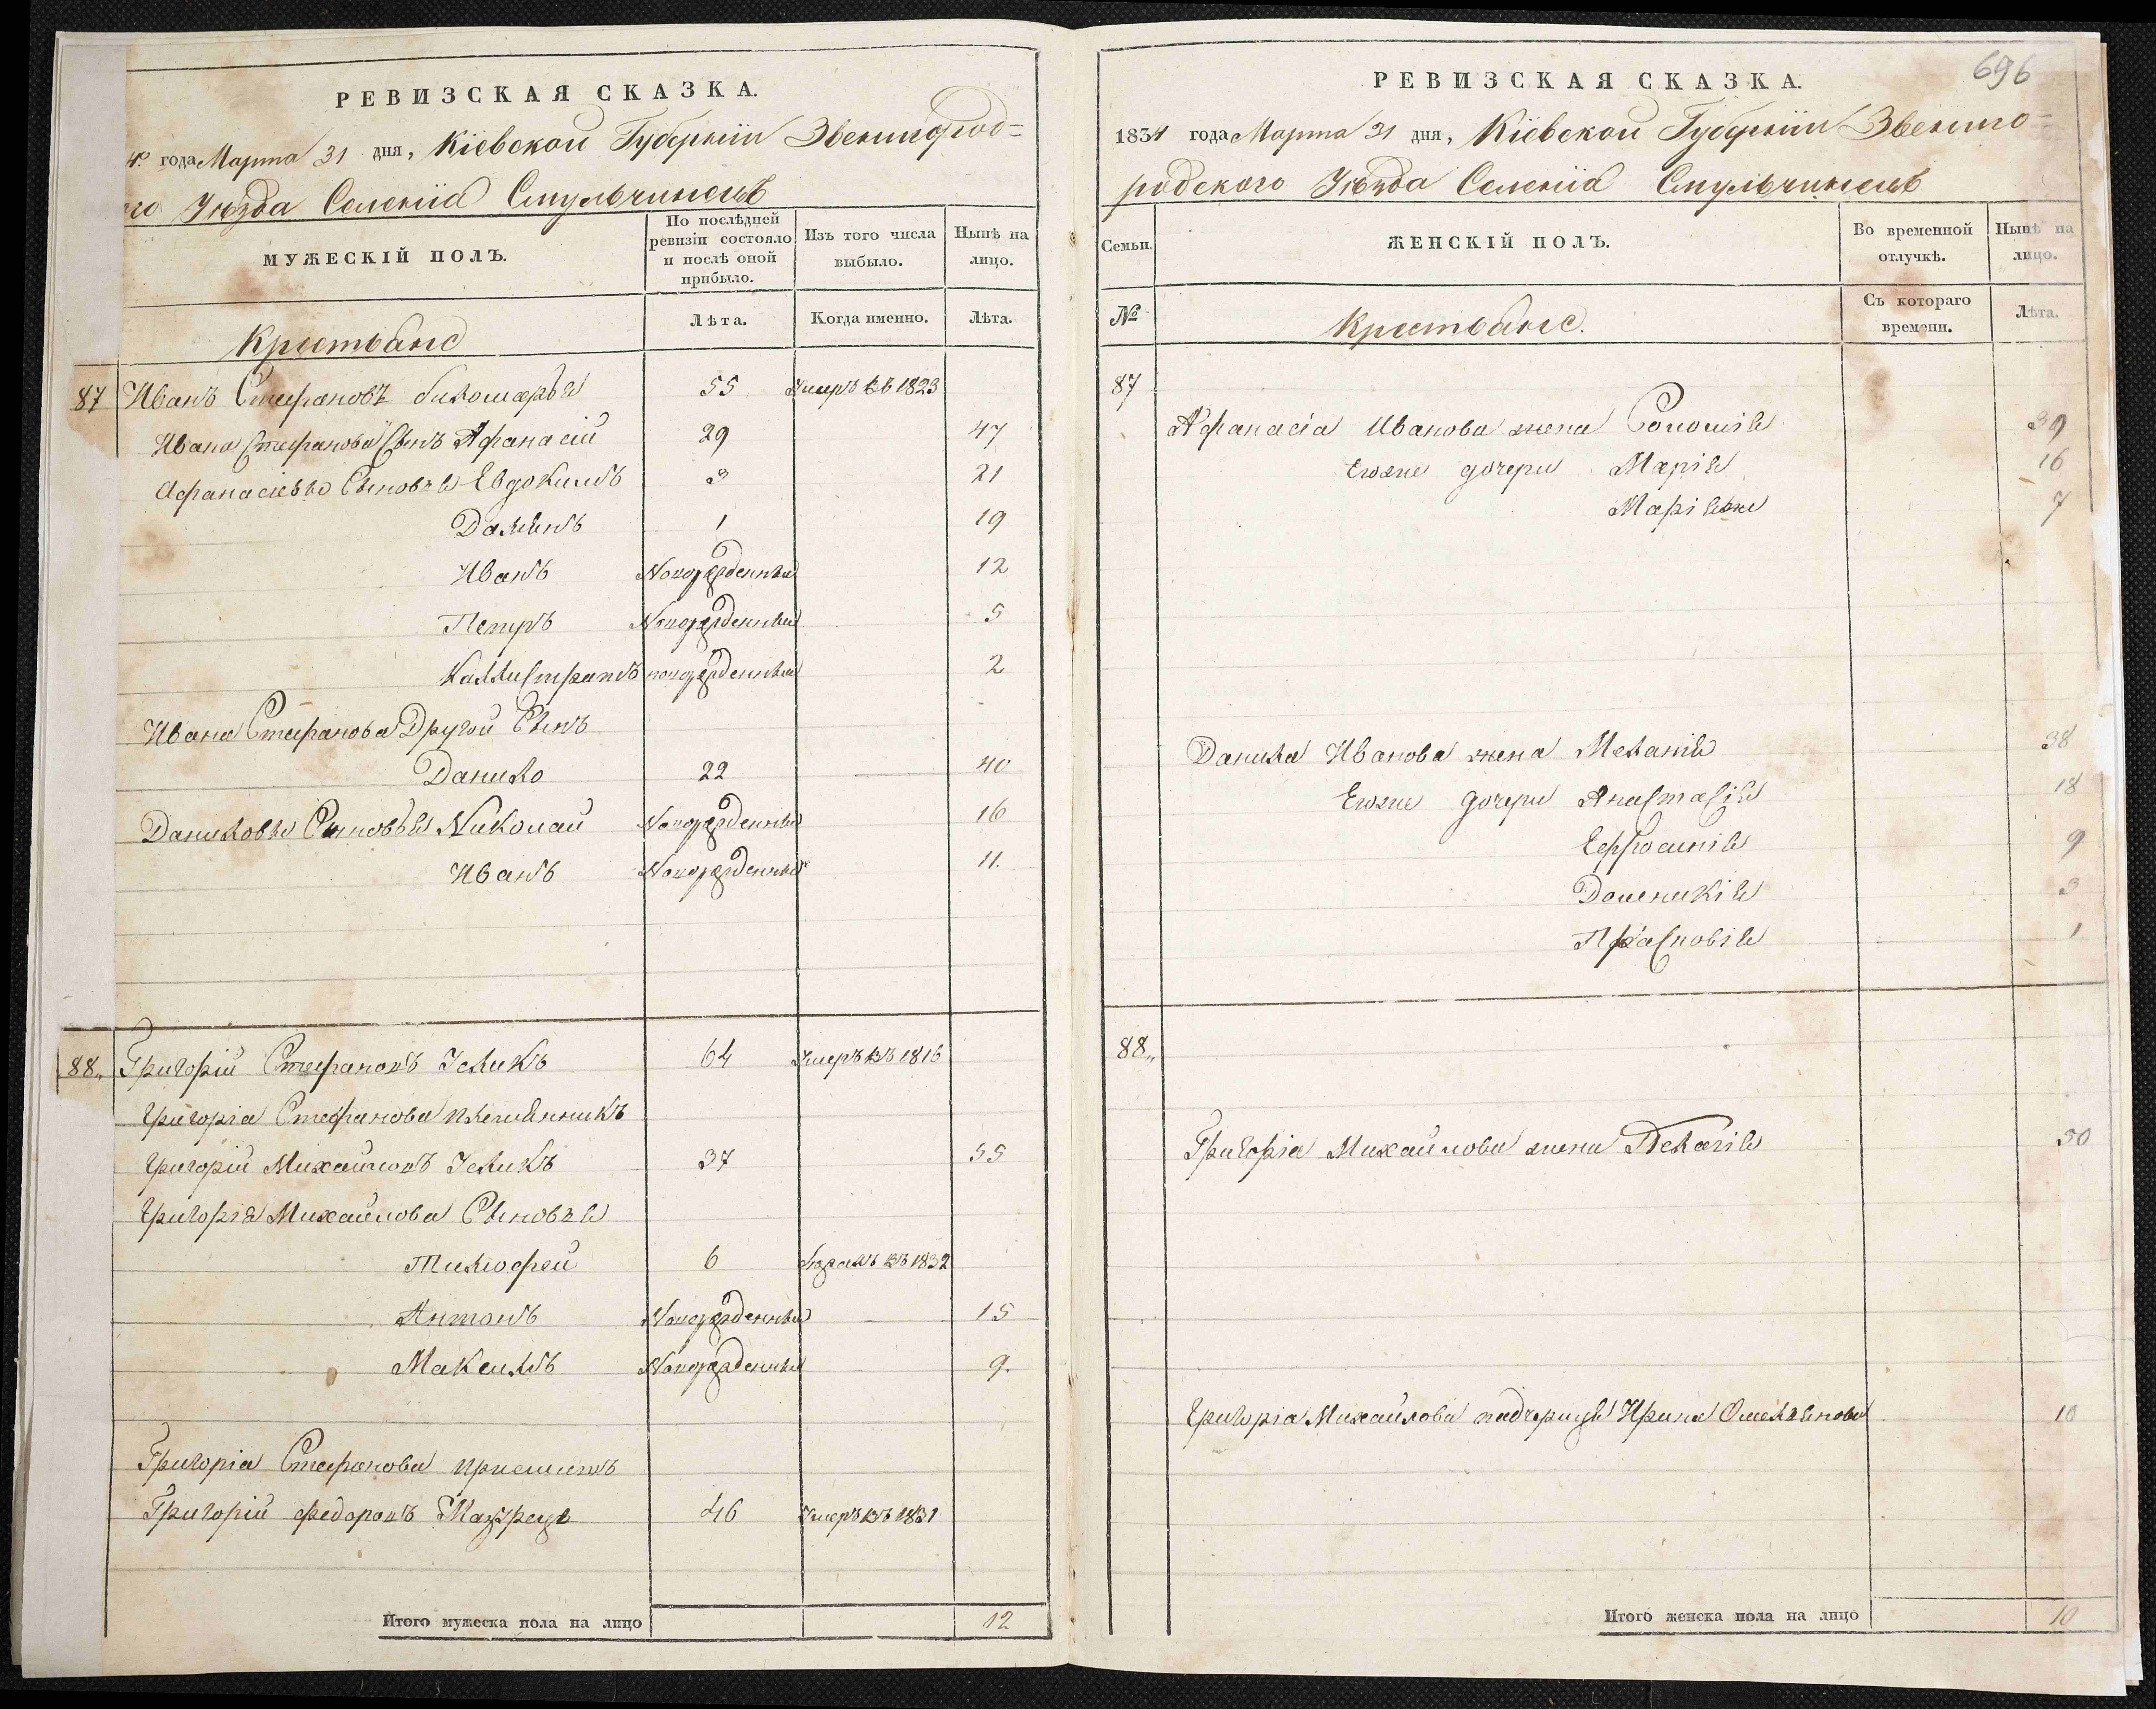 РЕВИЗСКАЯ СКАЗКА.
4го года Марта 31 дня, Кіевской Губерніи Звенигород=
го Уѣзда Селенія Стульчинецъ
МУЖЕСКІЙ ПОЛЪ.
По послѣдней ревизіи состояло и послѣ оной прибыло.
Изъ того числа выбыло.
Нынѣ на лицо.
Лѣта.
Когда именно.
Лѣта.
Крестьяне
87 Иванъ Стефановъ 55 Умеръ въ 1823
Ивана Стефанова Сынъ Афанасій 29 47
Афанасіевы Сыновья Евдокимъ 3 21
Даміянъ 1 19
Иванъ Новорожденный 12
Петръ Новорожденный 5
Каллистратъ новорожденный 2
Ивана Стефанова Другой Сынъ
Данило 22 40
Даниловы Сыновья Николай Новорожденный 16
Иванъ Новорожденный 11.
88„ Григорій Стефановъ 64 Умеръ въ 1816
Григорія Стефанова племянникъ
Григорій Михайловъ 37 55
Григорія Михайлова Сыновья
Тимофей 6 въ 1832
Антонъ Новорожденный 15
Максимъ Новорожденный 9.
Григорія Стефанова приемышъ
Григорій Федоровъ 46 Умеръ въ 1831
Итого мужеска пола на лицо 12
696
РЕВИЗСКАЯ СКАЗКА.
1834 года Марта 31 дня, Кіевской Губерніи Звениго=
родского Уѣзда Селенія Стульчинецъ
Семьи.
ЖЕНСКІЙ ПОЛЪ.
Во временной отлучкѣ.
Нынѣ на лицо.
№
Съ котораго времени.
Лѣта.
Крестьяне.
87
Афанасія Иванова жена Соломія 39
Егоже дочери Марія 16
Марія же 7
Данила Иванова жена Меланія 38
Егоже дочери Анастасія 18
Ефросинія 9
Доменикія 3
Прасковія 1
88„
Григорія Михайлова жена Пелагія 50
Григорія Михайлова падчерица Ирина Омельянова 10
Итого женска пола на лицо 10